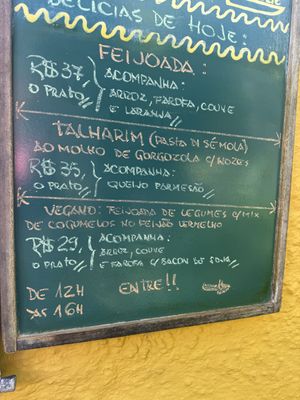 DELÍCIAS DE HOJE:
FEIJOADA:
R$37, ACOMPANHA:
O PRATO, ARROZ, FAROFA, COUVE
E LARANJA
TALHARIM (PASTA DI SÉMOLA)
AO MOLHO DE GORGOZOLA C/NOZES
R$35, ACOMPANHA:
O PRATO, QUEIJO PARMESÃO
VEGANO: FEIJOADA DE LEGUMES C/MIX
DE COGUMELOS NO FEIJÃO VERMELHO
R$29, ACOMPANHA:
ARROZ, COUVE
O PRATO, E FAROFA C/BACON DE SOJA
DE 12H ENTRE!!
ÀS 16H